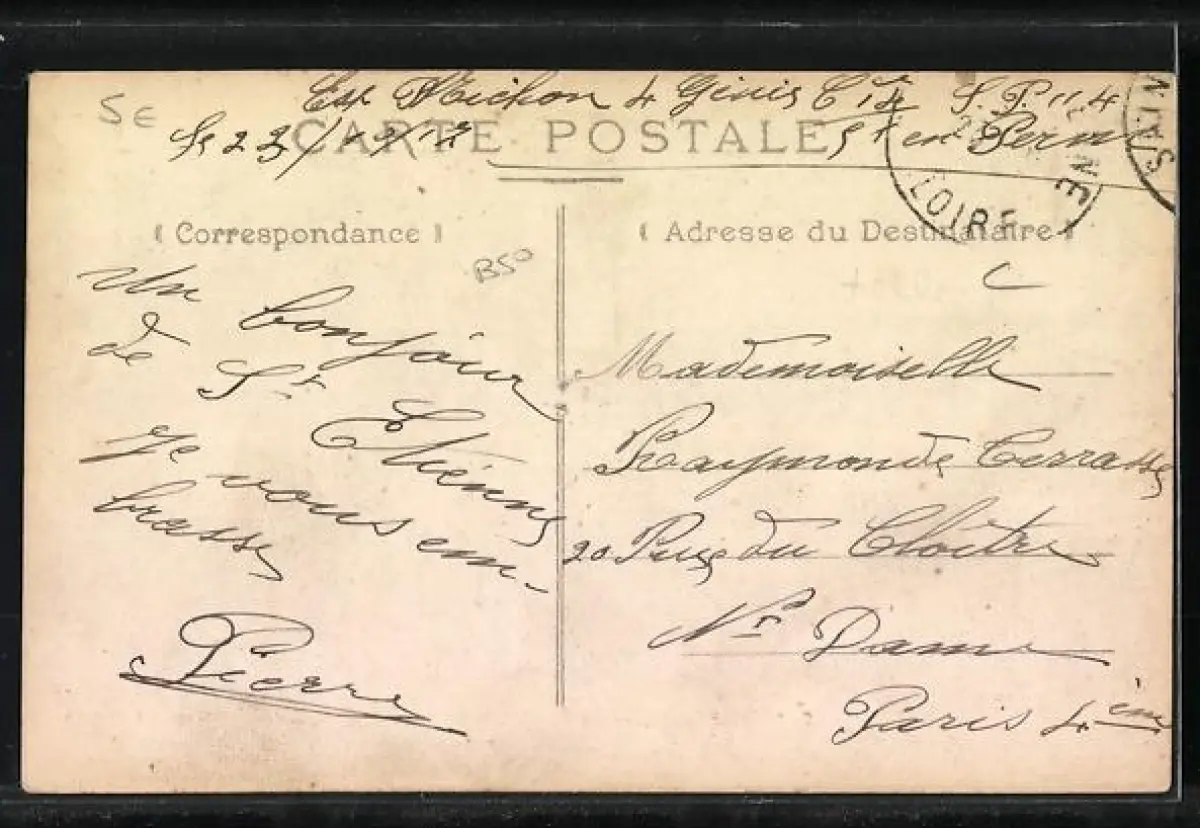 SE
Exp Michon 4 Génie Cie 14 S. P. 114
Le 23/12/17
en Perm
CARTE POSTALE
LOIRE
ENE
( Correspondance )
( Adresse du Destinataire )
B50
Un bonjour
de St Etienne
Je vous em-
brasse
Pierre
C
Mademoiselle
Raymonde Terrasse
20 Rue du Cloître
Nre Dame
Paris 4ème